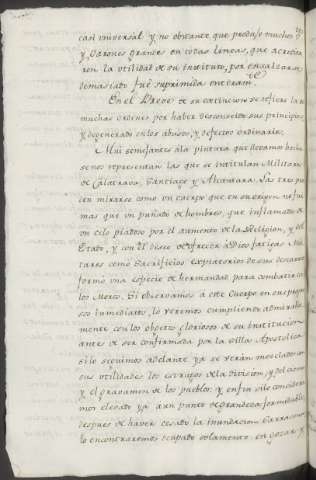 casi universal y no obstante que produjo muchos
y Varones grandes en todas lineas, que acredita
ron la utilidad de su Instituto, por ensalzarse
demasiado fue suprimida enteram.te
En el Breve de su extincion se refiere la de
muchas ordenes por haber desconocido sus principios
y degenerado en los abusos, y defectos ordinarios.
Mui semejantes ála pintura que llevamos hecha
se nos representan las que se intitulan Militares
de Calatrava, Santiago y Alcantara. Las tres pue
den mirarse como un cuerpo que en su origen no fue
mas que un puñado de hombres, que inflamados de
un celo piadoso por el aumento de la Religion, y del
Estado, y con el deseo de ofrecer á Dios fatigas Mili
tares como sacrificios expiatorios de sus pecados
formó una especie de hermandad para combatir con
los Moros. Si observamos a este Cuerpo en sus progre
sos inmediatos, lo veremos cumpliendo admirable
mente con los objetos gloriosos de su Institucion
antes de ser confirmada por la Silla Apostolica
si lo seguimos adelante ya se verán mezclados con
sus utilidades los estragos de la division, y del cisma
y el gravamen de los pueblos: y en fin si lo considera
mos elevado ya á un punto de grandeza formidable
despues de haver cesado la inundacion Sarracena
lo encontraremos ocupado solamente en gozar y